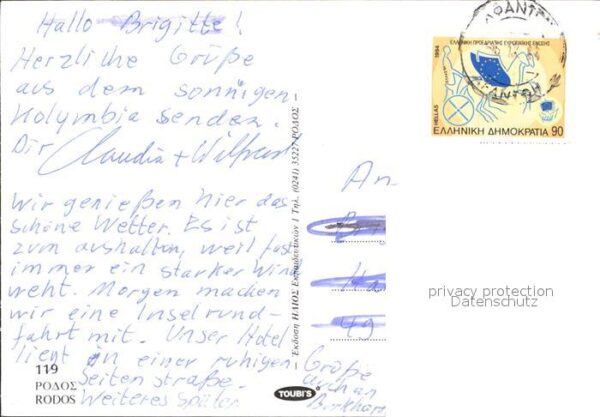 Hallo Brigitte!
Herzliche Grüße
aus dem sonnigen
Kolymbia senden
Dir Claudia + Wilfried
Wir genießen hier das
schöne Wetter. Es ist
zum aushalten, weil fast
immer ein starker Wind
weht. Morgen machen
wir eine Inselrund-
fahrt mit. Unser Hotel
liegt in einer ruhigen
Seitenstraße.
Weiteres später.
119
ΡΟΔΟΣ
RODOS
Έκδοση ΗΛΙΟΣ Τηλ. (0241) 35227 ΡΟΔΟΣ
TOUBI'S
ΑΦΑΝΤΟΥ
1994
ΕΛΛΗΝΙΚΗ ΠΡΟΕΔΡΙΑ ΤΗΣ ΕΥΡΩΠΑΪΚΗΣ ΕΝΩΣΗΣ
HELLAS
ΕΛΛΗΝΙΚΗ ΔΗΜΟΚΡΑΤΙΑ 90
An
49
privacy protection
Datenschutz
Grüße
auch an